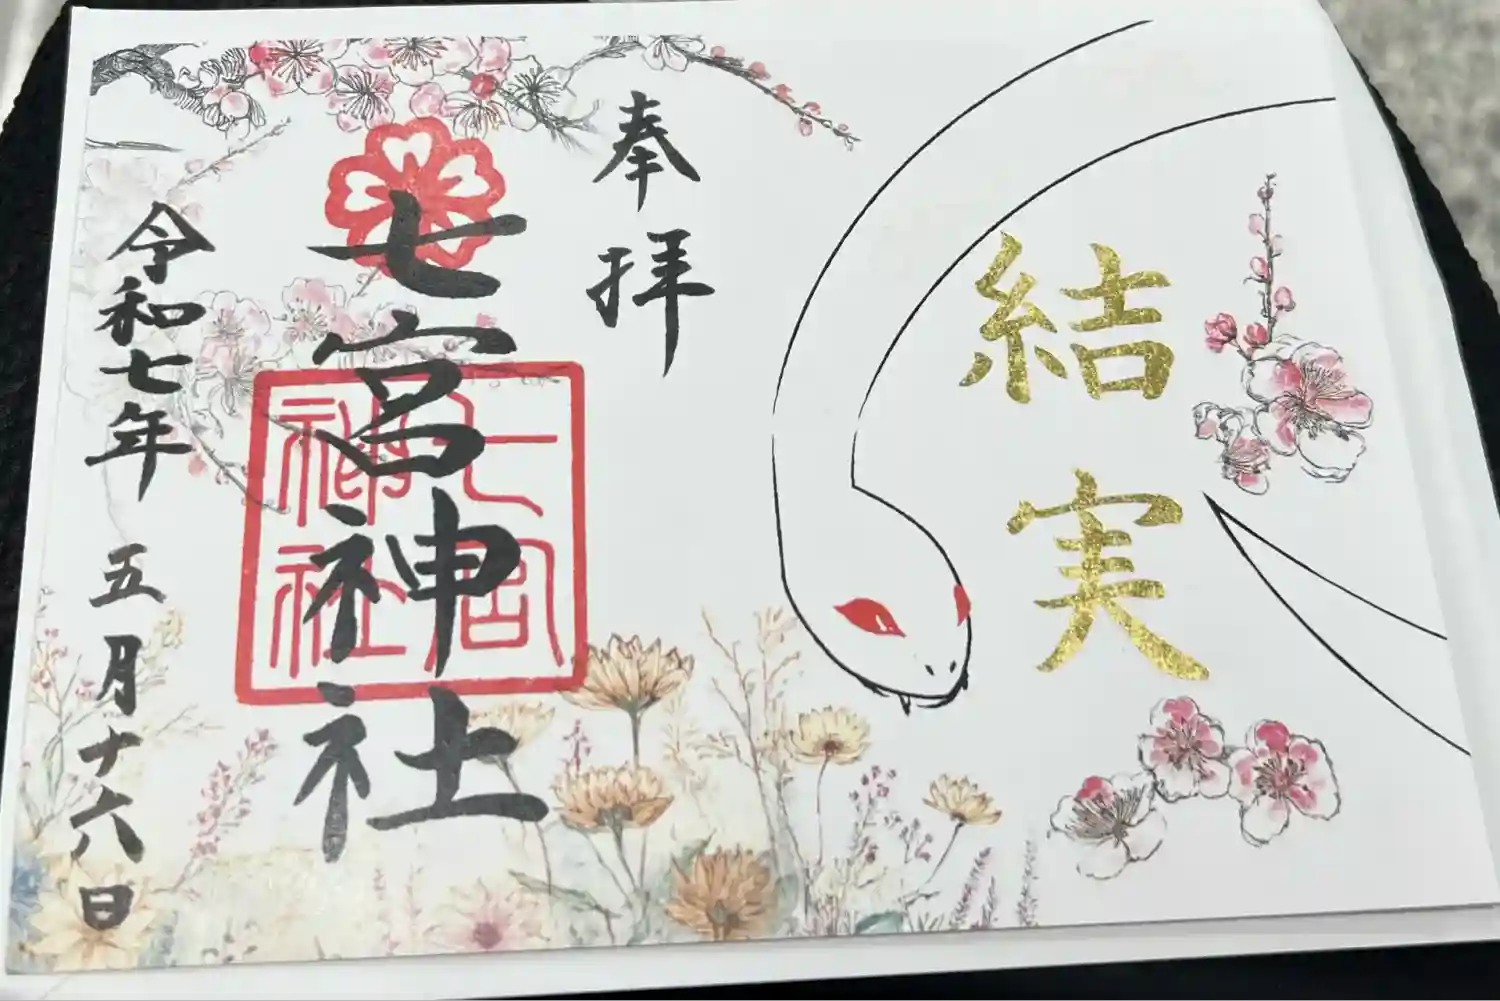 結実
奉拝
七宮神社
七宮
神社
令和七年 五月十六日